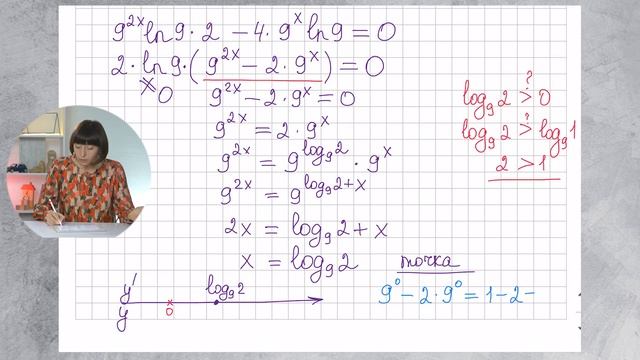 9^{2x} ln9 · 2 − 4 · 9^x ln9 = 0
2 · ln9 · (9^{2x} − 2 · 9^x) = 0
≠ 0
9^{2x} − 2 · 9^x = 0
9^{2x} = 2 · 9^x
9^{2x} = 9^{log_9 2} · 9^x
9^{2x} = 9^{log_9 2 + x}
2x = log_9 2 + x
x = log_9 2
log_9 2 >? 0
log_9 2 >? log_9 1
2 > 1
точка
9^0 − 2 · 9^0 = 1 − 2 −
y'
y
0
log_9 2